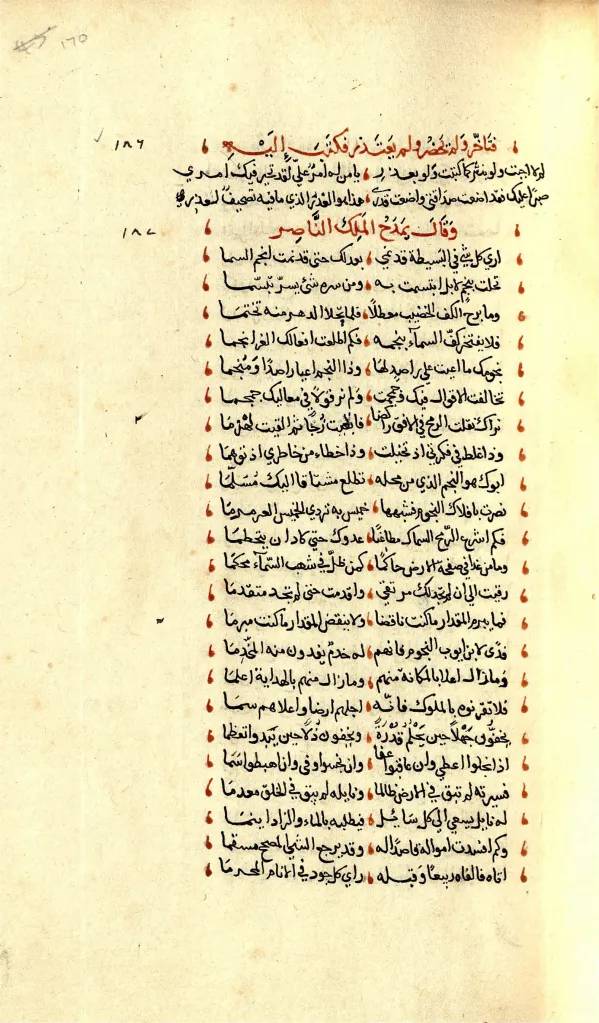 ١٧٥
١٨٦ فتأخر ولم يحضر ولم يعتذر فكتب إليه
لم لا اجبت ولو بشر كما كتبت ولو بعذر يا من له امر علي لقد تحير فيك امري
صبرا عليك فقد اضعت صداقتي واضعت قدري هذا هو الغدر الذي ما فيه تصحيف لعذر
١٨٧ وقال يمدح الملك الناصر
اري كل شي في البسيطة قد نمي بعدلك حتي قد نمت انجم السما
تحلت بنجم لا بل ابتسمت به ومن سره شي يسر تبسما
وما برح الكف الخضيب معطلا فلما تحلا الدهر منه تختما
فلا يفتخر كف السماء بنجمه فكم اطلعت افعالك الغر انجما
نجومك ما اعيت علي راصد لها وذا النجم اعيا راصدا ومنجما
تخالفت الاقوال فيك وجمجمت ولم نر قولا في معاليك جمجما
نراك نقلت الرمح في الافق راكضا فاظهرت زجا ثم القيت لهذما
وذا غلط في فكرتي اذ تخيلت وذا خطاء من خاطري اذ توهما
ابوك هو النجم الذي من محله تطلع مشتاقا اليك مسلما
نصرت بافلاك النجوم فشبهها خميس به تردي الخميس العرمرما
فكم اشرع الرمح السماك مطاعنا عدوك حتي كاد ان يتحطما
وما من غدا في صفحة الارض حاكما كمن ظل في شهب السماء محكما
رقيت الي ان لم تجد لك مرتقي واقدمت حتي لم تجد متقدما
فما يبرم المقدار ما كنت ناقضا ولا ينقض المقدار ما كنت مبرما
فدي لابن ايوب النجوم فانهم له خدم يفدون منه المخدما
وما زال اعلا بالمكانة منهم وما زال منهم بالهداية اعلما
فلا تقرنوه بالملوك فانه اجلهم ارضا واعلاهم سما
يخفون جهلا حين يحلم قدرة ويخفون ذلا حين يبدو تعظما
اذا بخلوا اعطي وان عاقبوا عفا وان غدروا وفي وان هبطوا سما
فسيرته لم تبق في الارض ظالما ونايله لم يبق في الخلق معدما
له نايل يسعي الي كل سايل فيطلبه بالماء والزاد اينما
وكم افسدت امواله قاصدا له وقد يرجع الشي المصحح مسقما
اتاه فالفاه ربيعا وقبله راي كل جود في الانام المحرما